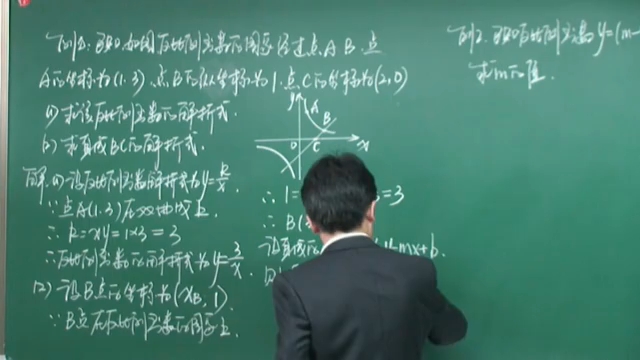 例1. 已知如图反比例函数的图象经过点A、B,点
A的坐标为(1.3),点B的纵坐标为1,点C的坐标为(2,0)
(1) 求该反比例函数的解析式.
(2) 求直线BC的解析式.
解:(1) 设反比例函数解析式为y=k/x
∵点A(1.3)在双曲线上
∴ k=xy=1×3=3
∴反比例函数的解析式为y=3/x.
(2) 设B点的坐标为(xB, 1)
∵B点在反比例函数的图象上.
y A B O C x
∴ 1= =3
∴ B(3
设直线的 y=mx+b.
例2. 已知反比例函数y=(m-
求m的值.